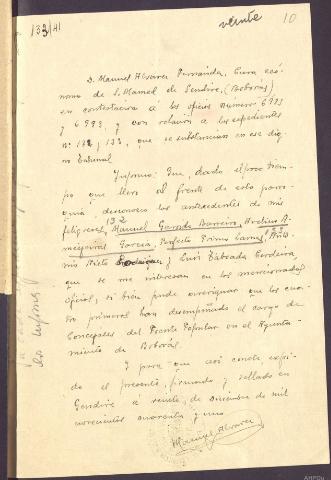 133/41
veinte
10
D. Manuel Alvarez Fernández, Cura ecó-
nomo de S. Mamed de Gendive, (Boborás)
en contestación á los oficios número 6993
y 6993, y con relación a los expedientes
nº 132, 133, que se substancian en ese dig-
no Tribunal
Informo: Que, dado el poco tiem-
po que llevo al frente de esta parro-
quia, desconozco los antecedentes de mis
132
feligreses, Manuel Barreiro,
García, Perfecto
133
Nieto y Luis Taboada Cerdeira,
que se me interesan en los mencionados
oficios, si bien pude averiguar que los cua-
tro primeros han desempeñado el cargo de
Concejales del Frente Popular en el Ayunta-
miento de Boborás.
Y para que así conste expi-
do el presente, firmado y sellado en
Gendive a veinte, de Diciembre de mil
novecientos cuarenta y uno.
Manuel Alvarez